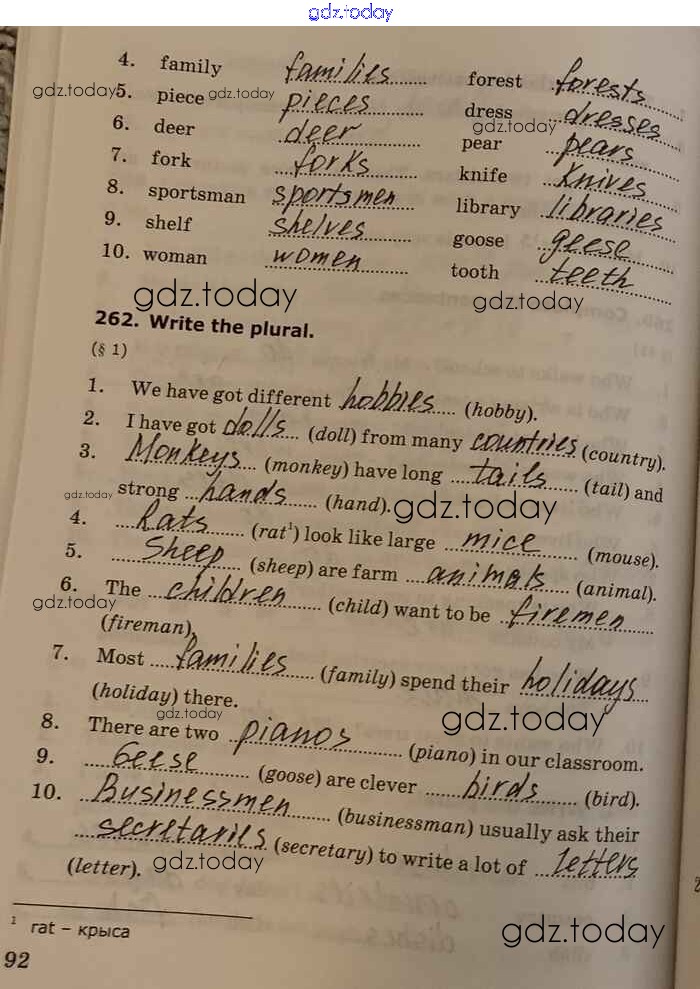 gdz.today
4. family families forest forests
gdz.today 5. piece gdz.today pieces dress dresses
6. deer deer gdz.today pear pears
7. fork forks knife knives
8. sportsman sportsmen library libraries
9. shelf shelves goose geese
10. woman women tooth teeth
gdz.today gdz.today
262. Write the plural.
(§ 1)
1. We have got different hobbies (hobby).
2. I have got dolls (doll) from many countries (country).
3. Monkeys (monkey) have long tails (tail) and
gdz.today strong hands (hand). gdz.today
4. Rats (rat¹) look like large mice (mouse).
5. Sheep (sheep) are farm animals (animal).
6. The children (child) want to be firemen
gdz.today (fireman).
7. Most families (family) spend their holidays
(holiday) there.
gdz.today gdz.today
8. There are two pianos (piano) in our classroom.
9. Geese (goose) are clever birds (bird).
10. Businessmen (businessman) usually ask their
secretaries (secretary) to write a lot of letters
(letter). gdz.today
¹ rat – крыса
gdz.today
92